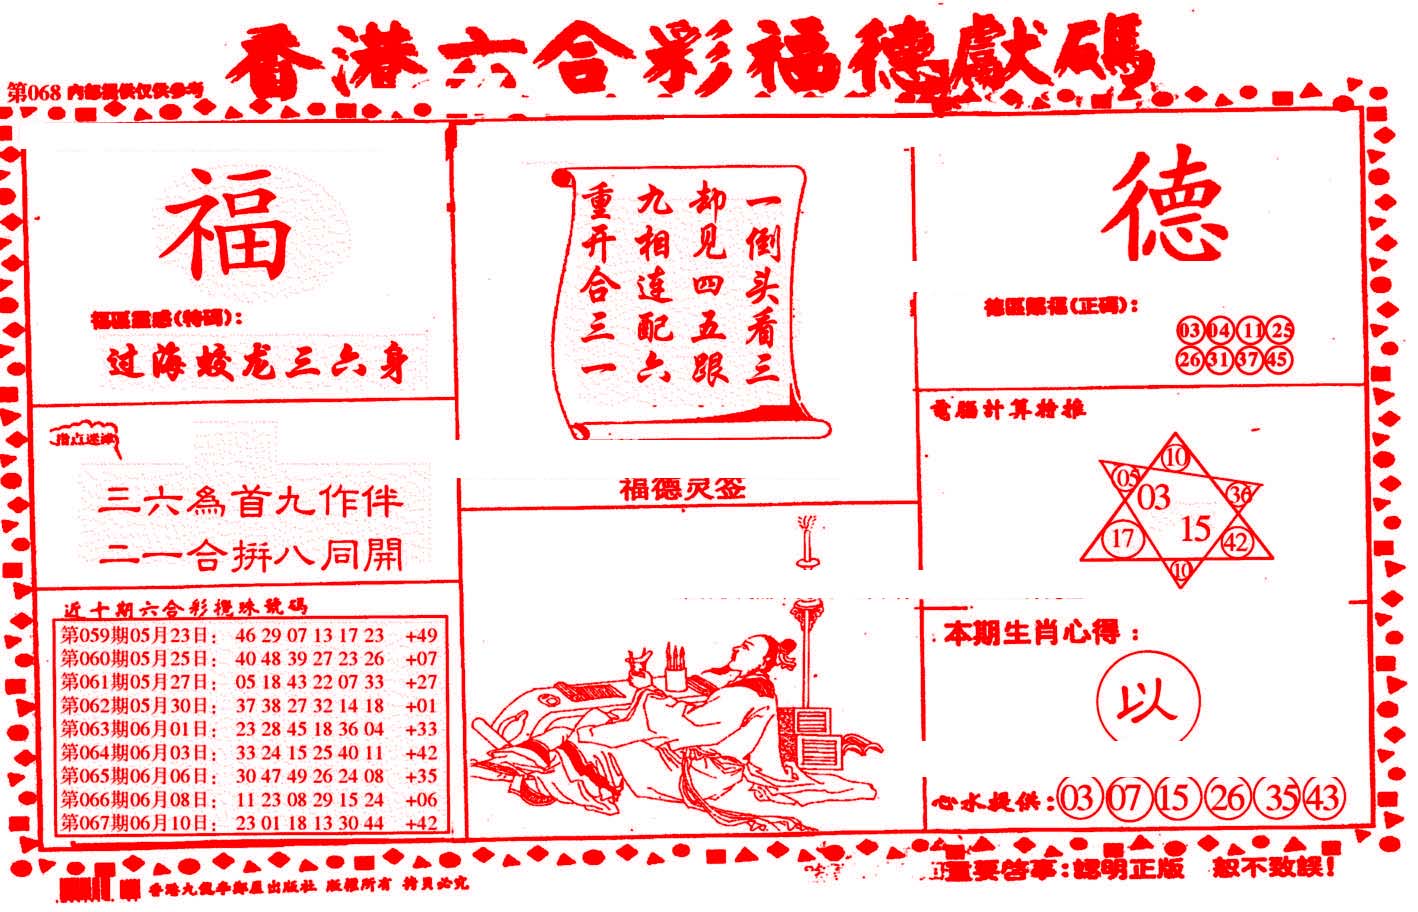 香港六合彩福德獻碼
第068 内部提供仅供参考
福
福區靈感(特碼):
过海蛟龙三六身
指点迷津
三六為首九作伴
二一合拼八同開
近十期六合彩攪珠號碼
第059期05月23日: 46 29 07 13 17 23 +49
第060期05月25日: 40 48 39 27 23 26 +07
第061期05月27日: 05 18 43 22 07 33 +27
第062期05月30日: 37 38 27 32 14 18 +01
第063期06月01日: 23 28 45 18 36 04 +33
第064期06月03日: 33 24 15 25 40 11 +42
第065期06月06日: 30 47 49 26 24 08 +35
第066期06月08日: 11 23 08 29 15 24 +06
第067期06月10日: 23 01 18 13 30 44 +42
一倒头看三
却见四五跟
九相连配六
重开合三一
福德灵签
德
德區賜福(正碼):
03 04 11 25
26 31 37 45
電腦計算特推
10
05 03 36
15
17 42
10
本期生肖心得:
以
心水提供: 03 07 15 26 35 43
香港九龍 出版社 版權所有 拷貝必究
重要啓事:認明正版 恕不致誤!